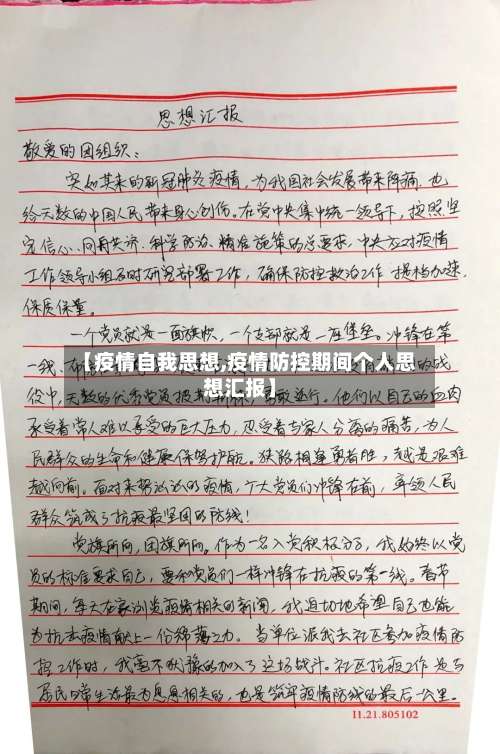 思想汇报
敬爱的团组织：
突如其来的新冠肺炎疫情，为我国社会发展带来阵痛，也
给无数的中国人民带来身心创伤。在党中央集中统一领导下，按照坚
定信心、同舟共济、科学防治、精准施策的总要求，中央应对疫情
工作领导小组及时研究部署工作，确保防控救治工作提档加速，
保质保量。
一个党员就是一面旗帜，一个支部就是一座堡垒。冲锋在第
一线、
的战
【疫情自我思想,疫情防控期间个人思
想汇报】
役中，无数的优秀党员
逆行。他们以自己的血肉
承受着常人难以承受的巨大压力，忍受着与家人分离的痛苦，为人
民群众的生命和健康保驾护航。狭路相逢勇者胜，越是艰难
越向前。面对来势汹汹的疫情，广大党员们冲锋在前，率领人民
群众筑成了抗疫最坚固的防线！
党旗所向，团旗所向。作为一名入党积极分子，我始终以党
员的标准要求自己，要和党员们一样冲锋在抗疫的第一线。春节
期间，每天在家浏览疫情相关的新闻，我迫切地希望自己也能
为抗击疫情献上一份绵薄之力。当单位派我去社区参加疫情防
控工作时，我毫不犹豫的加入了这场战斗。社区抗疫工作是与
居民日常生活最为息息相关的，也是筑牢疫情防线的最后一公里。
11.21.805102